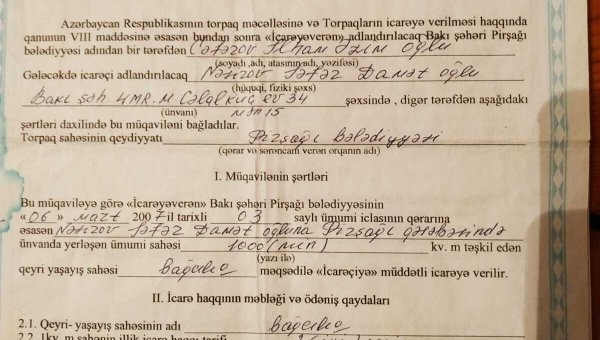 Azərbaycan Respublikasının torpaq məcəlləsinə və Torpaqların icarəyə verilməsi haqqında
qanunun VIII maddəsinə əsasən bundan sonra «İcarəyəverən» adlandırılacaq Bakı şəhəri Pirşağı
bələdiyyəsi adından bir tərəfdən Cəfərov İlham Əzim oğlu
(soyadı ,adı, atasının adı, vəzifəsi)
Gələcəkdə icarəçi adlandırılacaq Nəsirov Səfər Danət oğlu
(hüquqi, fiziki şəxs)
Bakı şəh 4 MR. M. Cəlalkuç ev 34 şəxsində , digər tərəfdən aşağıdakı
(ünvanı) mən 15
şərtləri daxilində bu müqaviləni bağladılar.
Torpaq sahəsinin qeydiyyatı Pirşağı bələdiyyəsi
(qərar və sərəncam verən orqanın adı)
I. Müqavilənin şərtləri
Bu müqaviləyə görə «İcarəyəverən» Bakı şəhəri Pirşağı bələdiyyəsinin
«06» mart 2007 il tarixli 03 saylı ümumi iclasının qərarına
əsasən Nəsirov Səfər Danət oğluna Pirşağı qəsəbəsində
ünvanda yerləşən ümumi sahəsi 1000 (min) kv. m təşkil edən
(yazı ilə)
qeyri yaşayış sahəsi Bağçılıq məqsədilə «İcarəçiyə» müddətli icarəyə verilir.
II. İcarə haqqının məbləği və ödəniş qaydaları
2.1. Qeyri- yaşayış sahəsinin adı Bağçılıq
2.2. 1kv. m sahənin illik icarə haqqı tarifi